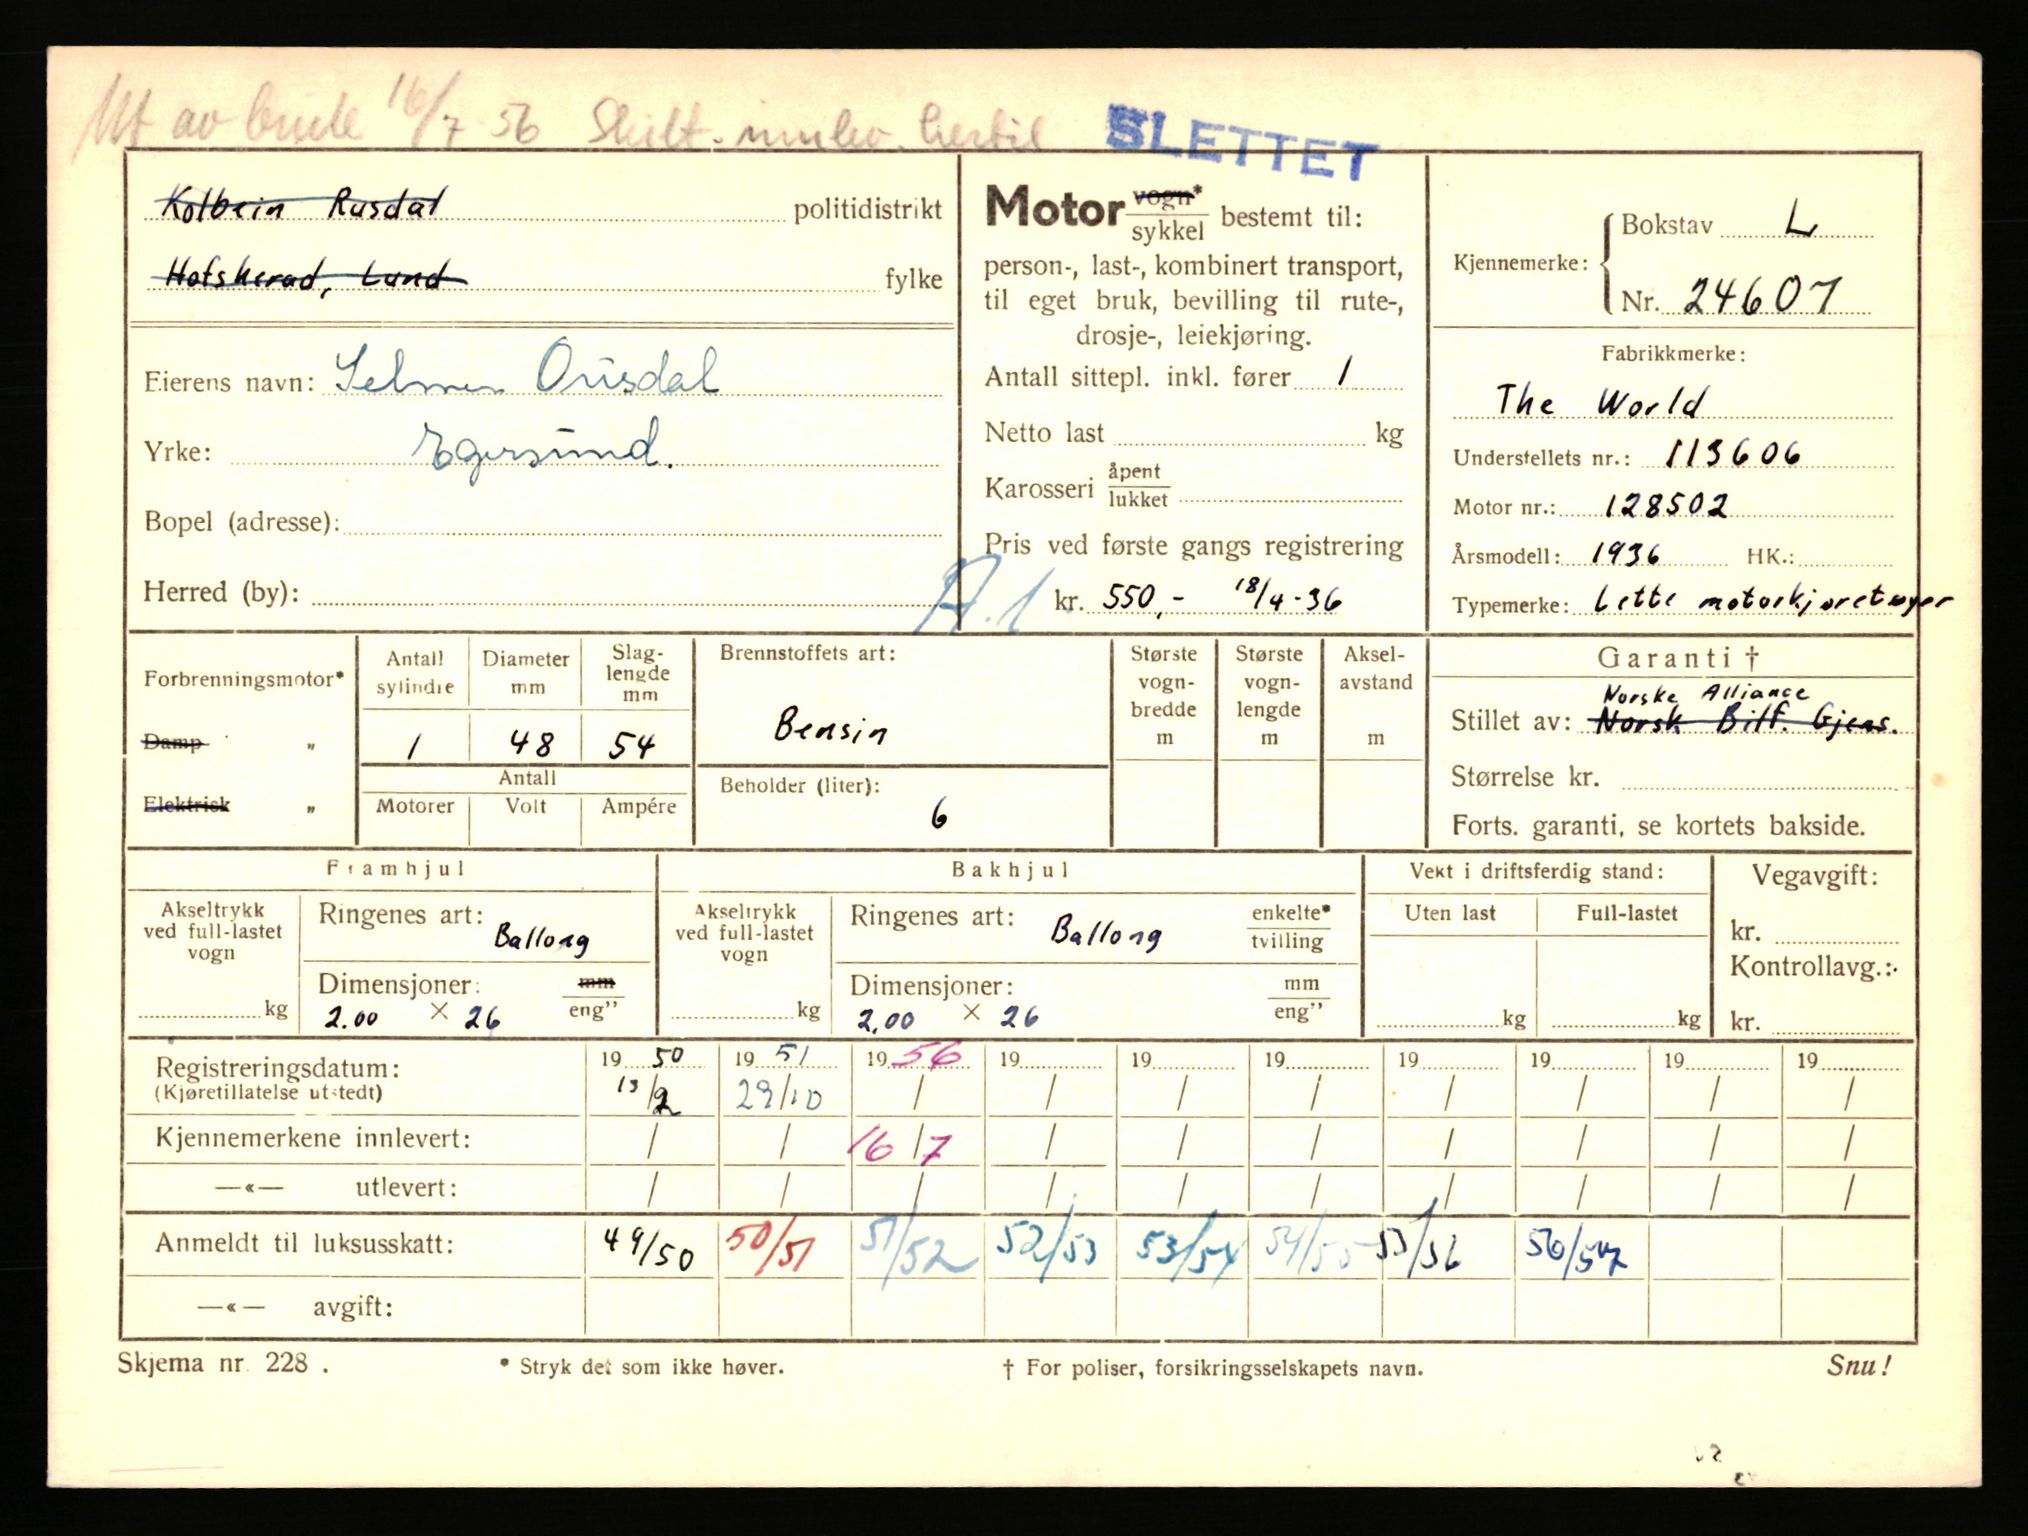 Ut av bruk 16/7 56 Skilt. innlev. hertil
SLETTET
Kolbein Rusdal politidistrikt
Hofsherad, Lund fylke
Eierens navn: Selmer Ousdal
Yrke: Egersund.
Bopel (adresse):
Herred (by):
Motor vogn*/sykkel bestemt til:
person-, last-, kombinert transport,
til eget bruk, bevilling til rute-,
drosje-, leiekjøring.
Antall sittepl. inkl. fører 1
Netto last kg
Karosseri åpent/lukket
Pris ved første gangs registrering
A.1 kr. 550,- 18/4-36
Kjennemerke: Bokstav L
Nr. 24607
Fabrikkmerke:
The World
Understellets nr.: 113606
Motor nr.: 128502
Årsmodell: 1936 HK.:
Typemerke: Lette motorkjøretøyer
Forbrenningsmotor*
Damp "
Elektrisk "
Antall sylindre
Diameter mm
Slag-lengde mm
1 48 54
Antall
Motorer Volt Ampére
Brennstoffets art:
Bensin
Beholder (liter):
6
Største vogn-bredde m
Største vogn-lengde m
Aksel-avstand m
Garanti †
Norske Alliance
Stillet av: Norsk Bilf. Gjens.
Størrelse kr.
Forts. garanti, se kortets bakside.
Framhjul
Akseltrykk ved full-lastet vogn
kg
Ringenes art: Ballong
Dimensjoner: mm/eng"
2.00 × 26
Bakhjul
Akseltrykk ved full-lastet vogn
kg
Ringenes art: Ballong enkelte*/tvilling
Dimensjoner: mm/eng"
2.00 × 26
Vekt i driftsferdig stand:
Uten last Full-lastet
kg kg
Vegavgift:
kr.
Kontrollavg.:
kr.
Registreringsdatum: 19 50 19 51 19 56 19 19 19 19 19 19 19
(Kjøretillatelse utstedt) 13/2 29/10 / / / / / / / /
Kjennemerkene innlevert: / / 16/7 / / / / / / /
—«— utlevert: / / / / / / / / / /
Anmeldt til luksusskatt: 49/50 50/51 51/52 52/53 53/54 54/55 55/56 56/57
—«— avgift:
Skjema nr. 228. * Stryk det som ikke høver. † For poliser, forsikringsselskapets navn. Snu!